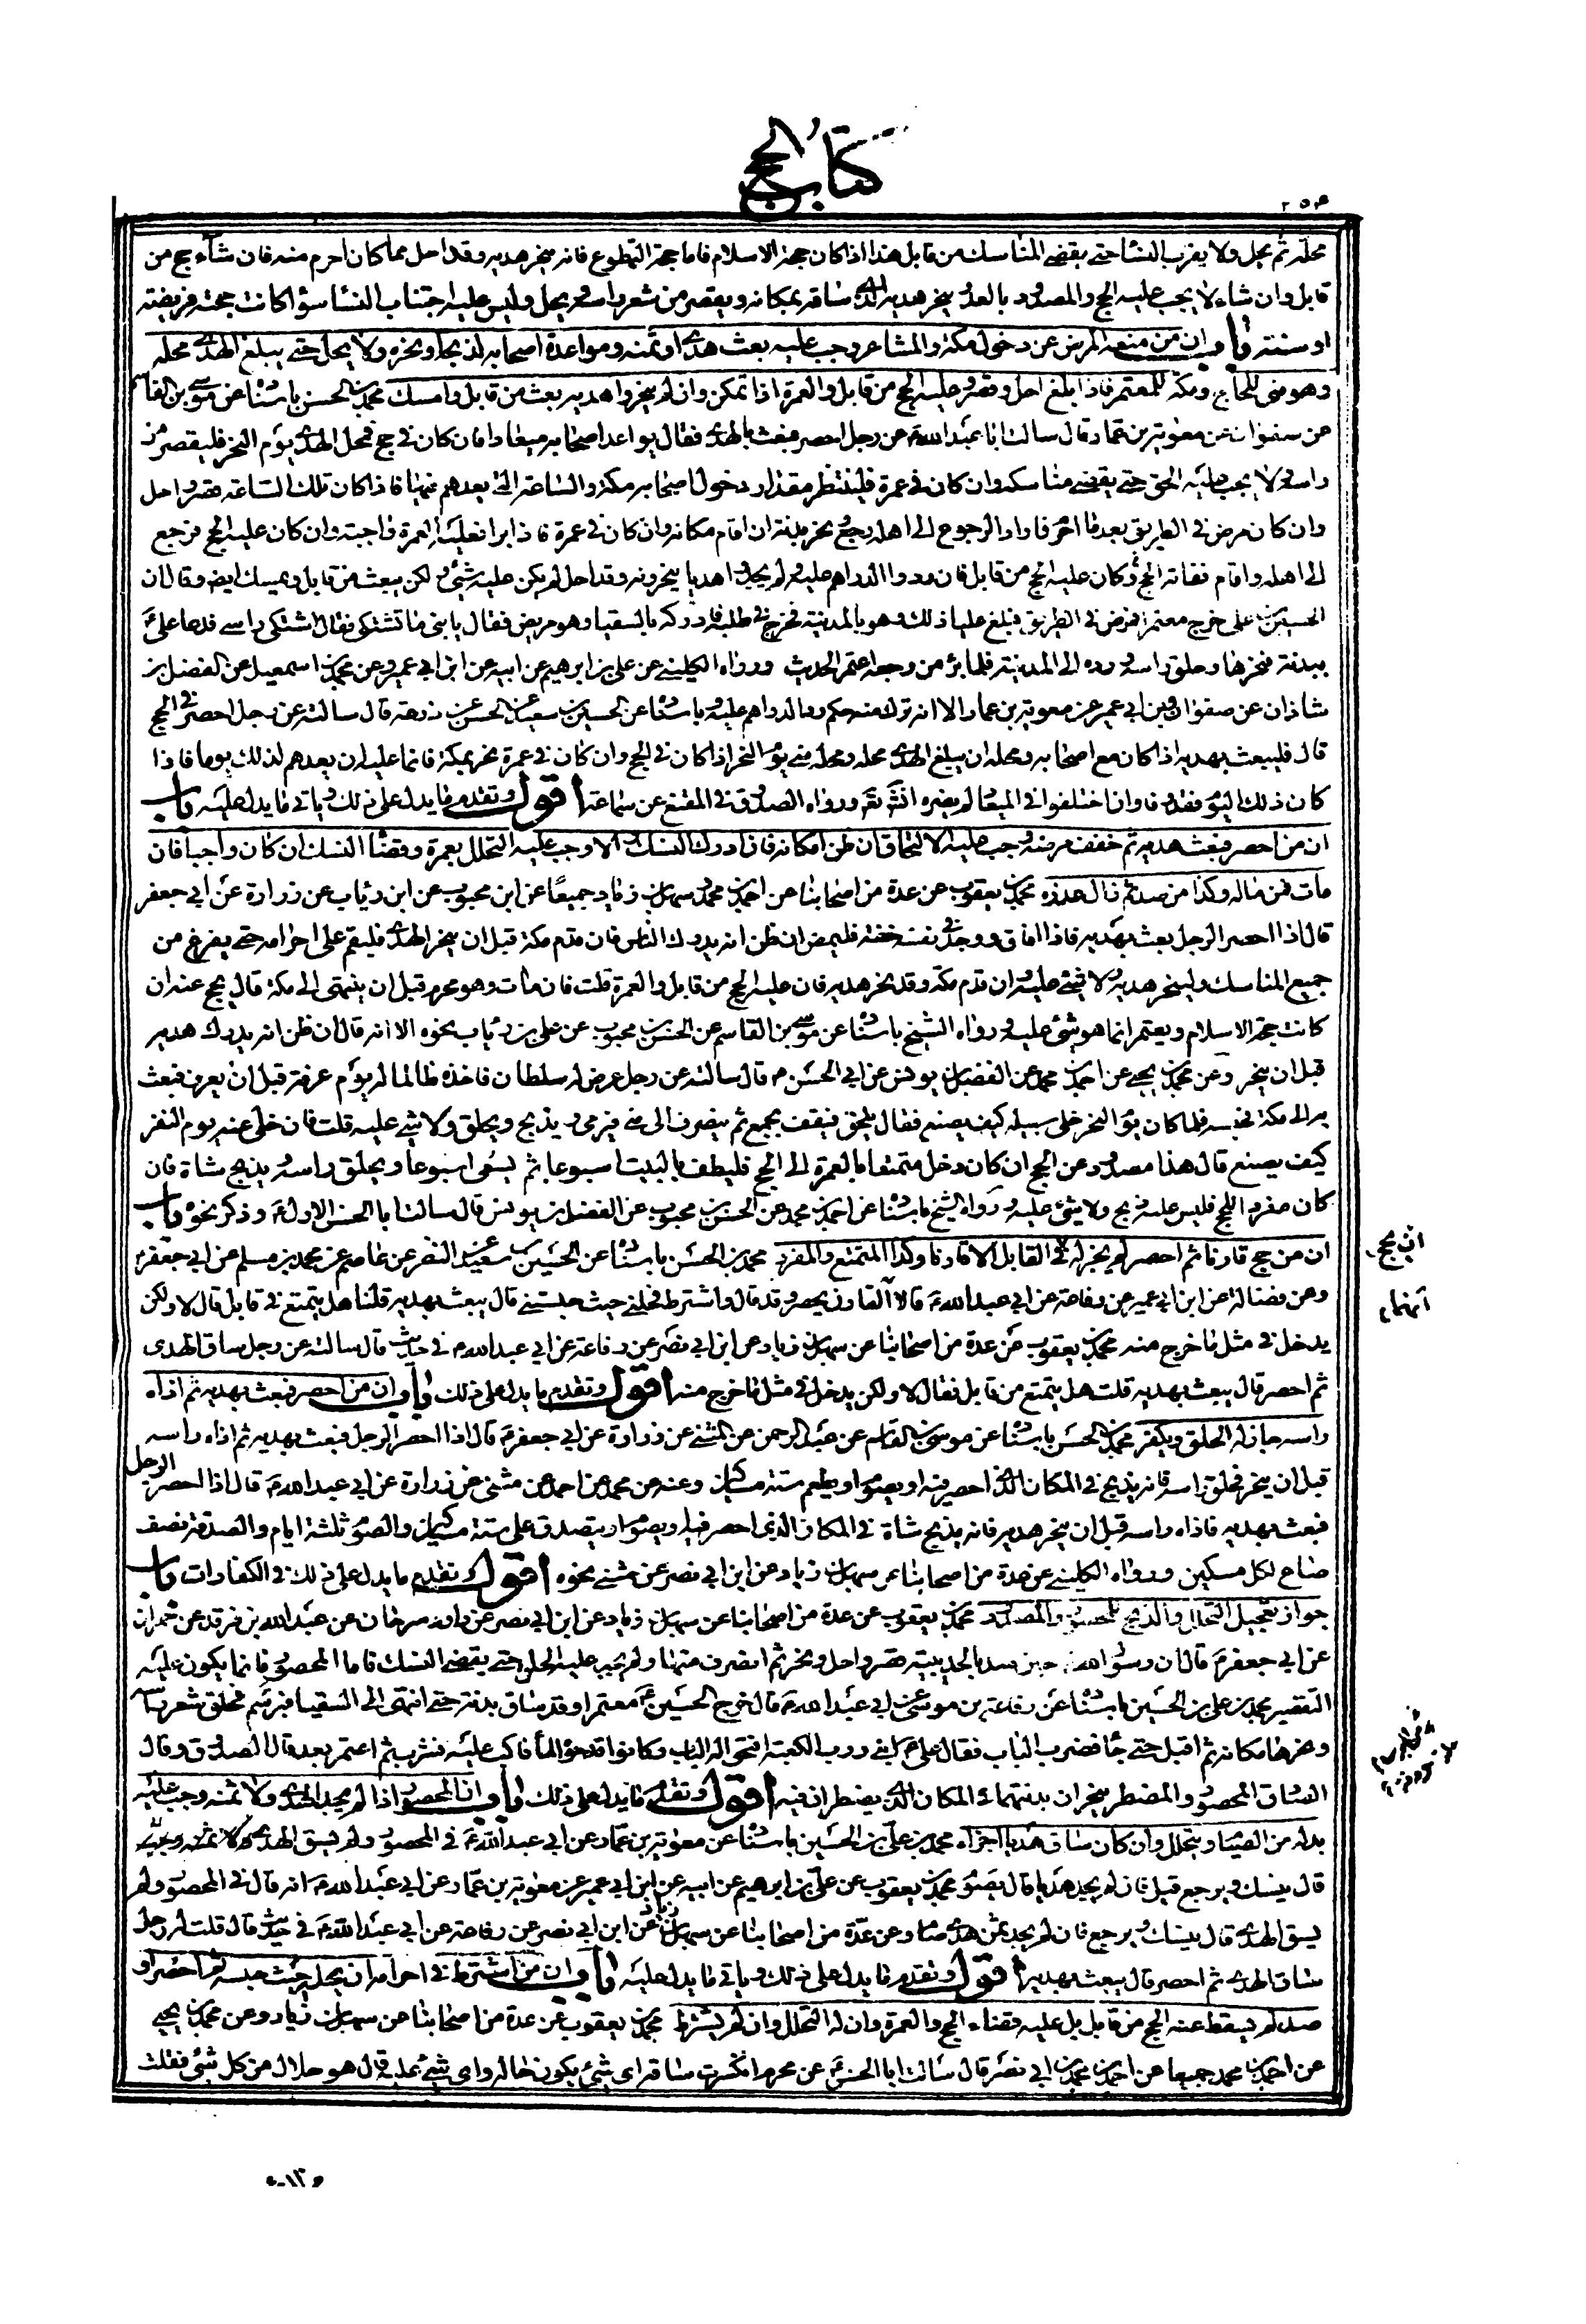 كتاب الحج
محله ثم يحل ولا يقرب النساء حتى يقضى المناسك من قابل هذا اذا كان حجة الاسلام فاما حجة التطوع فانه ينحر هديه وقد احل مما كان احرم منه فان شاء حج من
قابل وان شاء لا يجب عليه الحج والمصدود بالعدو ينحر هديه الذى ساقه بمكانه ويقصر من شعر راسه ويحل وليس عليه اجتناب النساء سواء كانت حجته فريضته
او سنته باب ان من منعه المرض عن دخول مكة والمشاعر وجب عليه بعث هدى او ثمنه ومواعدة اصحابه لذبحه او نحره ولا يحل حتى يبلغ الهدى محله
وهو منى للحاج ومكة للمعتمر فاذا بلغ احل وقصر وعليه الحج من قابل والعمرة اذا تمكن وان لم ينحروا هديه بعث من قابل وامسك محمد بن الحسن باسناده عن موسى بن القاسم
عن صفوان عن معوية بن عمار قال سالت ابا عبد الله ع عن رجل احصر فبعث بالهدى فقال يواعد اصحابه ميعادا فان كان فى حج فمحل الهدى يوم النحر فليقصر من
راسه ولا يجب عليه الحلق حتى يقضى مناسكه وان كان فى عمرة فلينتظر مقدار دخول اصحابه مكة والساعة التى يعدهم فيها فاذا كان تلك الساعة قصر واحل
وان كان مرض فى الطريق بعد ما احرم فاراد الرجوع الى اهله رجع ونحر بدنة ان اقام مكانه وان كان فى عمرة فاذا برأ فعليه العمرة واجبة وان كان عليه الحج فرجع
الى اهله واقام ففاته الحج وكان عليه الحج من قابل فان ردوا الدراهم عليه ولم يجدوا هديا ينحرونه وقد احل لم يكن عليه شئ ولكن يبعث من قابل ويمسك ايضا وقال ان
الحسين بن على خرج معتمرا فمرض فى الطريق فبلغ عليا ذلك وهو بالمدينة فخرج فى طلبه فادركه بالسقيا وهو مريض فقال يا بنى ما تشتكى فقال اشتكى راسى فدعا على ع
ببدنة فنحرها وحلق راسه ورده الى المدينة فلما برأ من وجعه اعتمر الحديث ورواه الكلينى عن على بن ابرهيم عن ابيه عن ابن ابى عمير وعن محمد بن اسمعيل عن الفضل بن
شاذان عن صفوان وابن ابى عمير عن معوية بن عمار الا انه ترك منه حكم رد الدراهم عليه وباسناده عن الحسين بن سعيد عن الحسن عن زرعة قال سالته عن رجل احصر فى الحج
قال فليبعث بهديه اذا كان مع اصحابه ومحله ان يبلغ الهدى محله ومحله منى يوم النحر اذا كان فى الحج وان كان فى عمرة نحر بمكة فانما عليه ان يعدهم لذلك يوما فاذا
كان ذلك اليوم فقد وفا وان اختلفوا فى الميعاد لم يضره انشاء الله تعالى ورواه الصدوق فى المقنع عن سماعة اقول وتقدم ما يدل على ذلك وياتى ما يدل عليه باب
ان من احصر فبعث هديه ثم خفف مرضه وجب عليه الالتحاق ان ظن امكانه فاذا ادرك النسك والا وجب عليه التحلل بعمرة وقضاء النسك ان كان واجبا فان
مات فمن ماله وكذا من صد ثم زال عذره محمد بن يعقوب عن عدة من اصحابنا عن احمد بن محمد وسهل بن زياد جميعا عن ابن محبوب عن ابن رئاب عن زرارة عن ابى جعفر
قال اذا احصر الرجل بعث بهديه فاذا افاق ووجد فى نفسه خفة فليمض ان ظن انه يدرك الناس فان قدم مكة قبل ان ينحر الهدى فليقم على احرامه حتى يفرغ من
جميع المناسك ولينحر هديه ولا شئ عليه وان قدم مكة وقد نحر هديه فان عليه الحج من قابل والعمرة قلت فان مات وهو محرم قبل ان ينتهى الى مكة قال يحج عنه ان
كانت حجة الاسلام ويعتمر انما هو شئ عليه ورواه الشيخ باسناده عن موسى بن القاسم عن الحسن بن محبوب عن على بن رئاب نحوه الا انه قال ان ظن انه يدرك هديه
قبل ان ينحر وعن محمد بن يحيى عن احمد بن محمد عن الفضل بن يونس عن ابى الحسن ع قال سالته عن رجل عرض له سلطان فاخذه ظالما له يوم عرفة قبل ان يعرف فبعث
به الى مكة فحبسه فلما كان يوم النحر خلى سبيله كيف يصنع فقال يلحق فيقف بجمع ثم ينصرف الى منى فيرمى ويذبح ويحلق ولا شئ عليه قلت فان خلى عنه يوم النفر
كيف يصنع قال هذا مصدود عن الحج ان كان دخل متمتعا بالعمرة الى الحج فليطف بالبيت اسبوعا ثم يسعى اسبوعا ويحلق راسه ويذبح شاة فان
كان مفردا للحج فليس عليه ذبح ولا شئ عليه ورواه الشيخ باسناده عن احمد بن محمد عن الحسن بن محبوب عن الفضل بن يونس قال سالت ابا الحسن الاول ع وذكر نحوه باب
ان من حج قارنا ثم احصر لم يجز له فى القابل الا قارنا وكذا المتمتع والمفرد محمد بن الحسن باسناده عن الحسين بن سعيد عن النضر عن عاصم عن محمد بن مسلم عن ابى جعفر ع
وعن فضالة عن ابن ابى عمير عن رفاعة عن ابى عبد الله ع قالا القارن يحصر وقد قال واشترط فحلنى حيث حبستنى قال يبعث بهديه قلنا هل يتمتع فى قابل قال لا ولكن
يدخل فى مثل ما خرج منه محمد بن يعقوب عن عدة من اصحابنا عن سهل بن زياد عن ابن ابى نصر عن رفاعة عن ابى عبد الله ع فى حديث قال سالته عن رجل ساق الهدى
ثم احصر قال يبعث بهديه قلت هل يتمتع من قابل فقال لا ولكن يدخل فى مثل ما خرج منه اقول وتقدم ما يدل على ذلك باب ان من احصر فبعث بهديه ثم اذاه
راسه جاز له الحلق ويكفر محمد بن الحسن باسناده عن موسى بن القاسم عن عبد الرحمن عن المثنى عن زرارة عن ابى جعفر ع قال اذا احصر الرجل فبعث بهديه ثم اذاه راسه
قبل ان ينحر فحلق راسه فانه يذبح فى المكان الذى احصر فيه او يصوم او يطعم ستة مساكين وعنه عن محمد عن احمد عن مثنى عن زرارة عن ابى عبد الله ع قال اذا احصر الرجل
فبعث بهديه فاذاه راسه قبل ان ينحر هديه فانه يذبح شاة فى المكان الذى احصر فيه او يصوم او يتصدق على ستة مساكين والصوم ثلثة ايام والصدقة نصف
صاع لكل مسكين ورواه الكلينى عن عدة من اصحابنا عن سهل بن زياد عن ابن ابى نصر عن مثنى نحوه اقول وتقدم ما يدل على ذلك فى الكفارات باب
جواز تعجيل التحلل والذبح للمحصور والمصدود محمد بن يعقوب عن عدة من اصحابنا عن سهل بن زياد عن ابن ابى نصر عن داود بن سرحان عن عبد الله بن فرقد عن حمران
عن ابى جعفر ع قال ان رسول الله حين صد بالحديبية قصر واحل ونحر ثم انصرف منها ولم يجب عليه الحلق حتى يقضى النسك فاما المحصور فانما يكون عليه
التقصير محمد بن على بن الحسين باسناده عن رفاعة بن موسى عن ابى عبد الله ع قال خرج الحسين ع معتمرا وقد ساق بدنة حتى انتهى الى السقيا فبرسم فحلق شعر راسه
ونحرها مكانه ثم اقبل حتى جاء فضرب الباب فقال على ع ابنى ورب الكعبة افتحوا له الباب وكانوا قد حموا الماء فاكب عليه فشرب ثم اعتمر بعد قال الصدوق وقال
الصادق المحصور والمضطر ينحران بدنتهما فى المكان الذى يضطران فيه اقول وتقدم ما يدل على ذلك باب ان المحصور اذا لم يجد الهدى ولا ثمنه وجب عليه
بدله من الصيام ويتحلل وان كان ساق هديا اجزاه محمد بن على بن الحسين باسناده عن معوية بن عمار عن ابى عبد الله ع فى المحصور ولم يسق الهدى
قال ينسك ويرجع قيل فان لم يجد هديا قال يصوم محمد بن يعقوب عن على بن ابرهيم عن ابيه عن ابن ابى عمير عن معوية بن عمار عن ابى عبد الله ع انه قال فى المحصور ولم
يسق الهدى قال ينسك ويرجع فان لم يجد ثمن هدى صام وعن عدة من اصحابنا عن سهل بن زياد عن ابن ابى نصر عن رفاعة عن ابى عبد الله ع فى حديث قال قلت له رجل
ساق الهدى ثم احصر قال يبعث بهديه اقول وتقدم ما يدل على ذلك وياتى ما يدل عليه باب ان من اشترط فى احرامه ان يحل حيث حبسه ثم احصر او
صد لم يسقط عنه الحج من قابل بل عليه قضاء الحج والعمرة وان له التحلل وان لم يشترط محمد بن يعقوب عن عدة من اصحابنا عن سهل بن زياد وعن محمد بن يحيى
عن احمد بن محمد جميعا عن احمد بن محمد بن ابى نصر قال سالت ابا الحسن ع عن محرم انكسرت ساقه اى شئ يكون حاله واى شئ عليه قال هو حلال من كل شئ فقلت